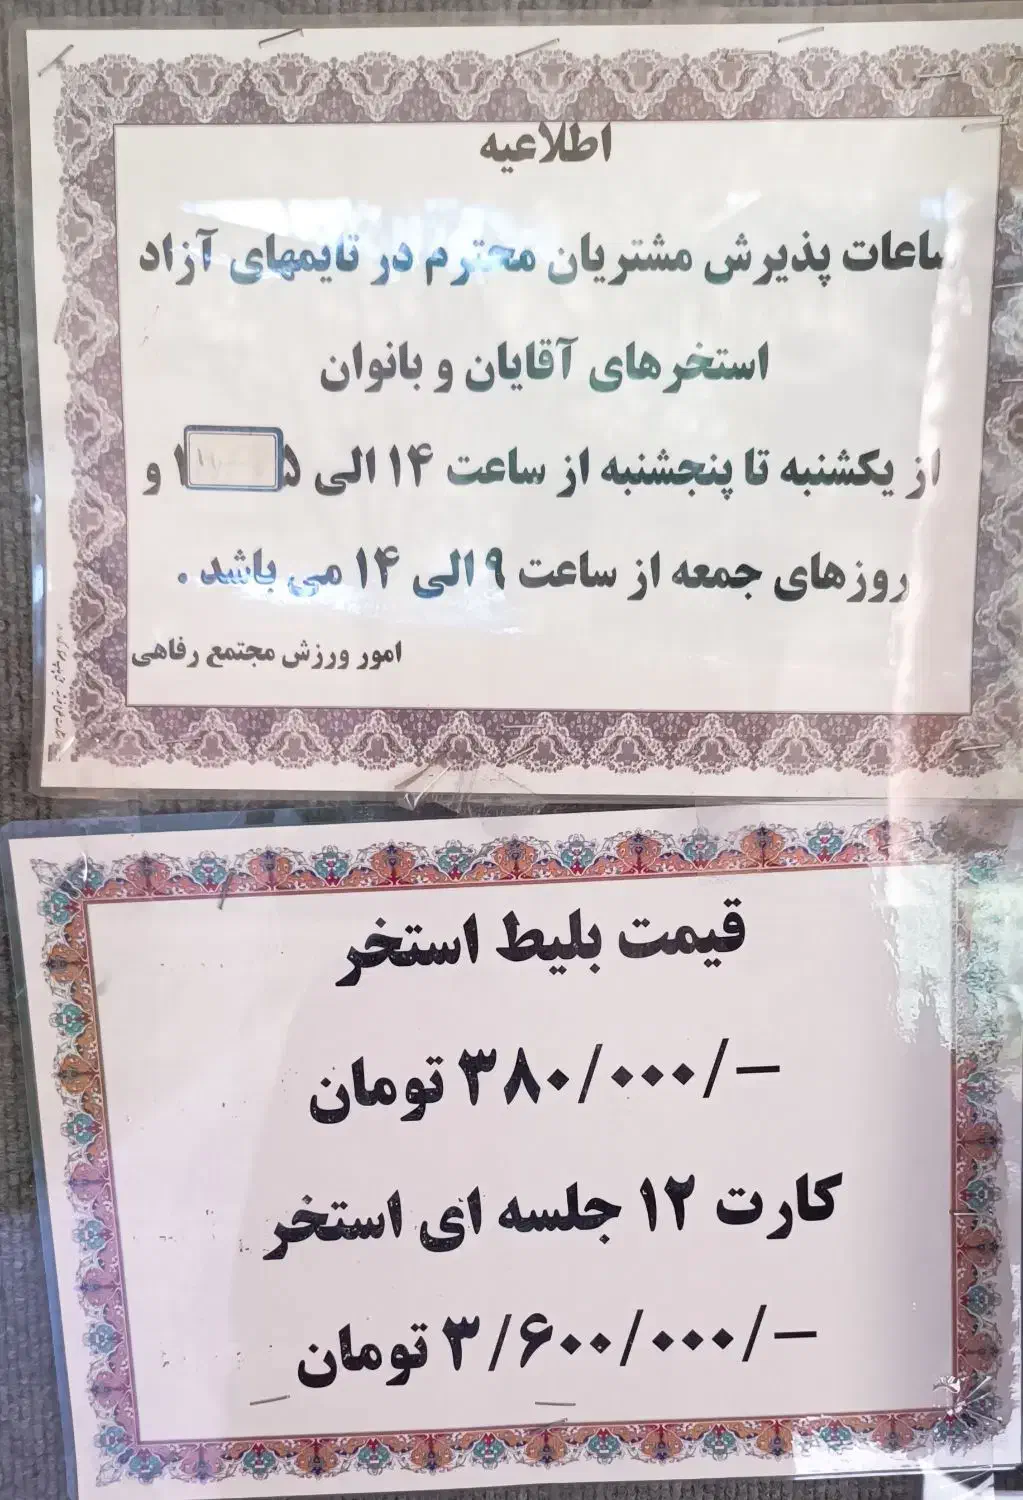 اطلاعیه
ساعات پذیرش مشتریان محترم در تایمهای آزاد
استخرهای آقایان و بانوان
از یکشنبه تا پنجشنبه از ساعت ۱۴ الی و
روزهای جمعه از ساعت ۹ الی ۱۴ می باشد .
امور ورزش مجتمع رفاهی
قیمت بلیط استخر
۳۸۰/۰۰۰/- تومان
کارت ۱۲ جلسه ای استخر
۳/۶۰۰/۰۰۰/- تومان